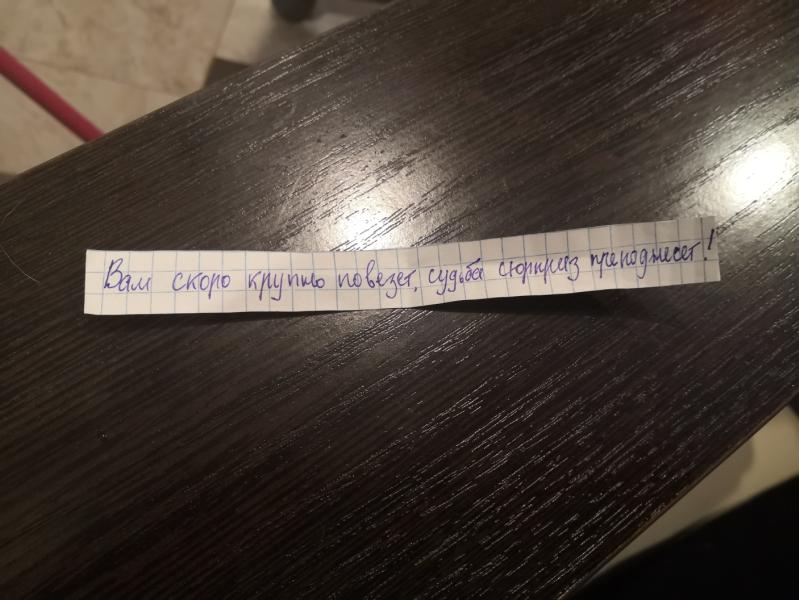 Вам скоро крупно повезет, судьба сюрприз преподнесет!